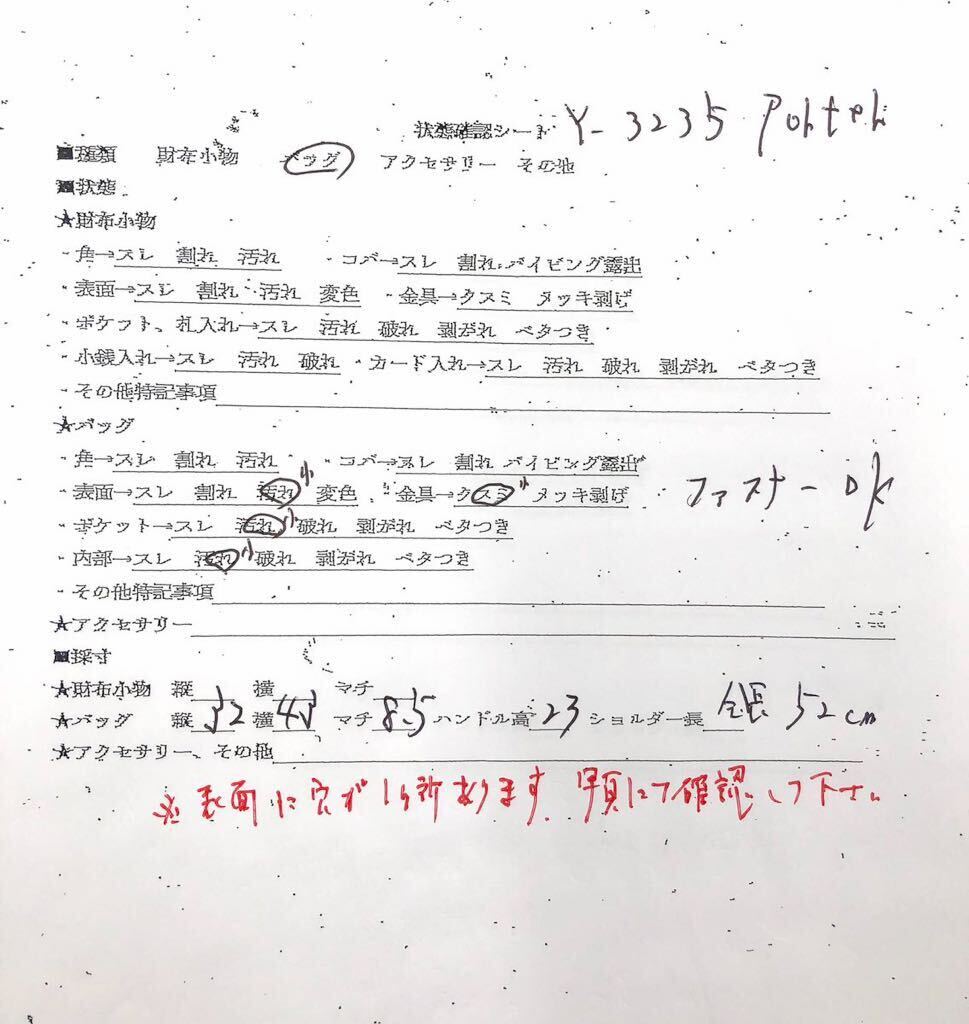 状態確認シート Y-3235 Porter
■種類 財布小物 バッグ アクセサリー その他
■状態
★財布小物
・角→スレ 割れ 汚れ ・コバ→スレ 割れ パイピング露出
・表面→スレ 割れ 汚れ 変色 ・金具→クスミ メッキ剥げ
・ポケット、札入れ→スレ 汚れ 破れ 剥がれ ベタつき
・小銭入れ→スレ 汚れ 破れ ・カード入れ→スレ 汚れ 破れ 剥がれ ベタつき
・その他特記事項
★バッグ
・角→スレ 割れ 汚れ ・コバ→スレ 割れ パイピング露出
・表面→スレ 割れ 汚れ小 変色 ・金具→クスミ小 メッキ剥げ ファスナーOK
・ポケット→スレ 汚れ小 破れ 剥がれ ベタつき
・内部→スレ 汚れ小 破れ 剥がれ ベタつき
・その他特記事項
★アクセサリー
■採寸
★財布小物 縦 横 マチ
★バッグ 縦 32 横 43 マチ 8.5 ハンドル高 23 ショルダー長 全長 52cm
★アクセサリー、その他
※表面に穴が1ヶ所あります。写真にて確認して下さい